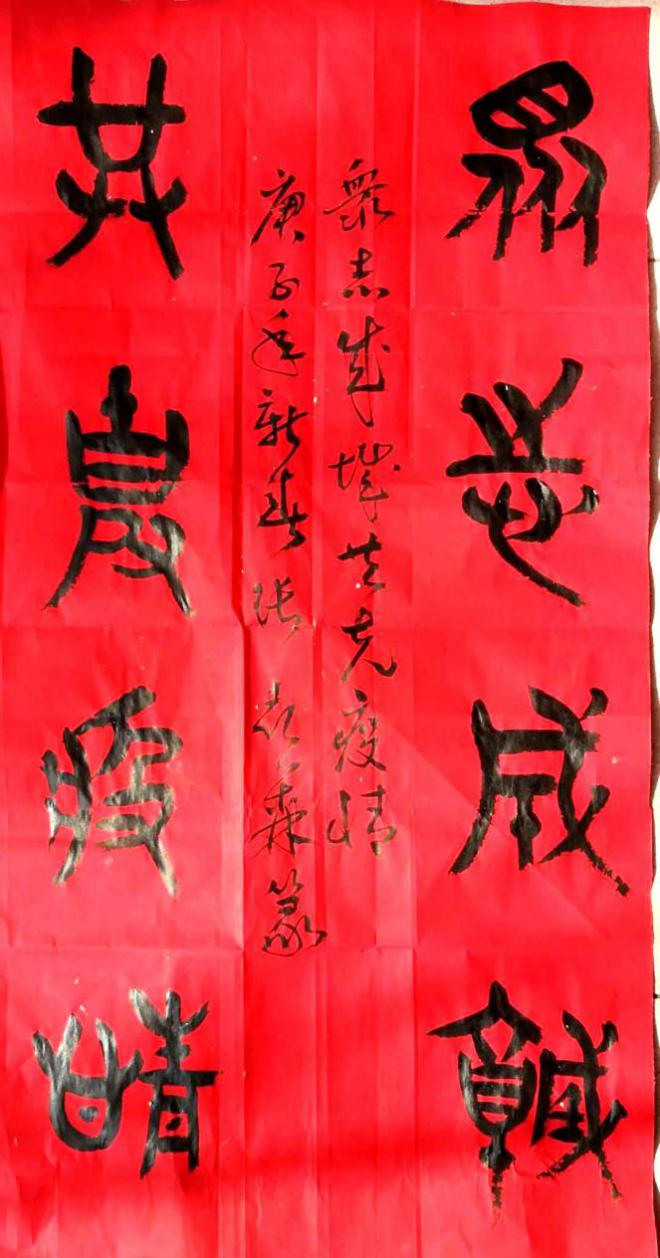 眾志成城
衆志成城共克疫情
庚子年新春张森篆
共克疫情